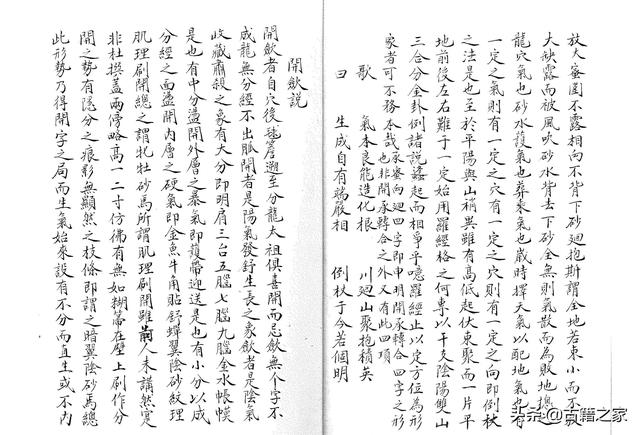 放人蜜圍不露相向不背下砂迴抱斯謂全地若東小而不
大缺露而被風吹砂水背去下砂全無則氣散而為敗地總
龍穴氣也砂水護氣也葬乘氣也歲時擇天氣以配地氣也
一定之氣則有一定之穴有一定之穴則有一定之向即倒杖
之法是也至於平陽與山稍異雖有高低起伏東聚而一片平
地前後左右難于一定始用羅經格之何專以干支陰陽雙山
三合分金卦例諸說蠭起而相爭乎噫羅經止以定方位為形
家者可不務本哉承脊向迴四字即申明開承轉合四字之形
也非開承轉合之外又有此四項
歌 氣本良能造化根 川迴山聚抱積英
曰 生成自有端嚴相 倒杖于今若個明
開歛說
開歛者自穴後毬簷遡至分龍太祖俱喜開而忌歛無个字不
成龍無分經不出脈開者是陽氣發舒生長之象歛者是陰氣
收藏肅殺之象有大分即明肩三台五腦七腦九腦金水帳幙
是也有中分盪開外層之暴氣即護帶迎送是也有小分以成
分經之面盪開內層之硬氣即金魚牛角貼舒蟬翼陰砂紋理
肌理刷開總之謂牝牡砂馬所謂肌理刷開雖前人未講然實
非杜撰蓋兩停略高一二寸仿佛有無如糊箒在壁上刷作分
開之勢有隱分之痕影無顯然之枝條即謂之暗翼陰砂馬總
此形勢乃得開字之局而生氣始來設有不分而直生或不內
头条@古籍之家